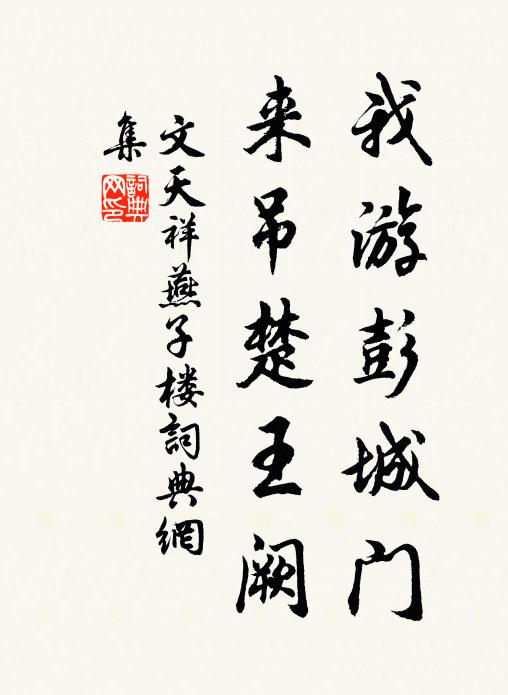 我游彭城门
来吊楚王阙
文天祥燕子楼詞典網
集
詞典網印